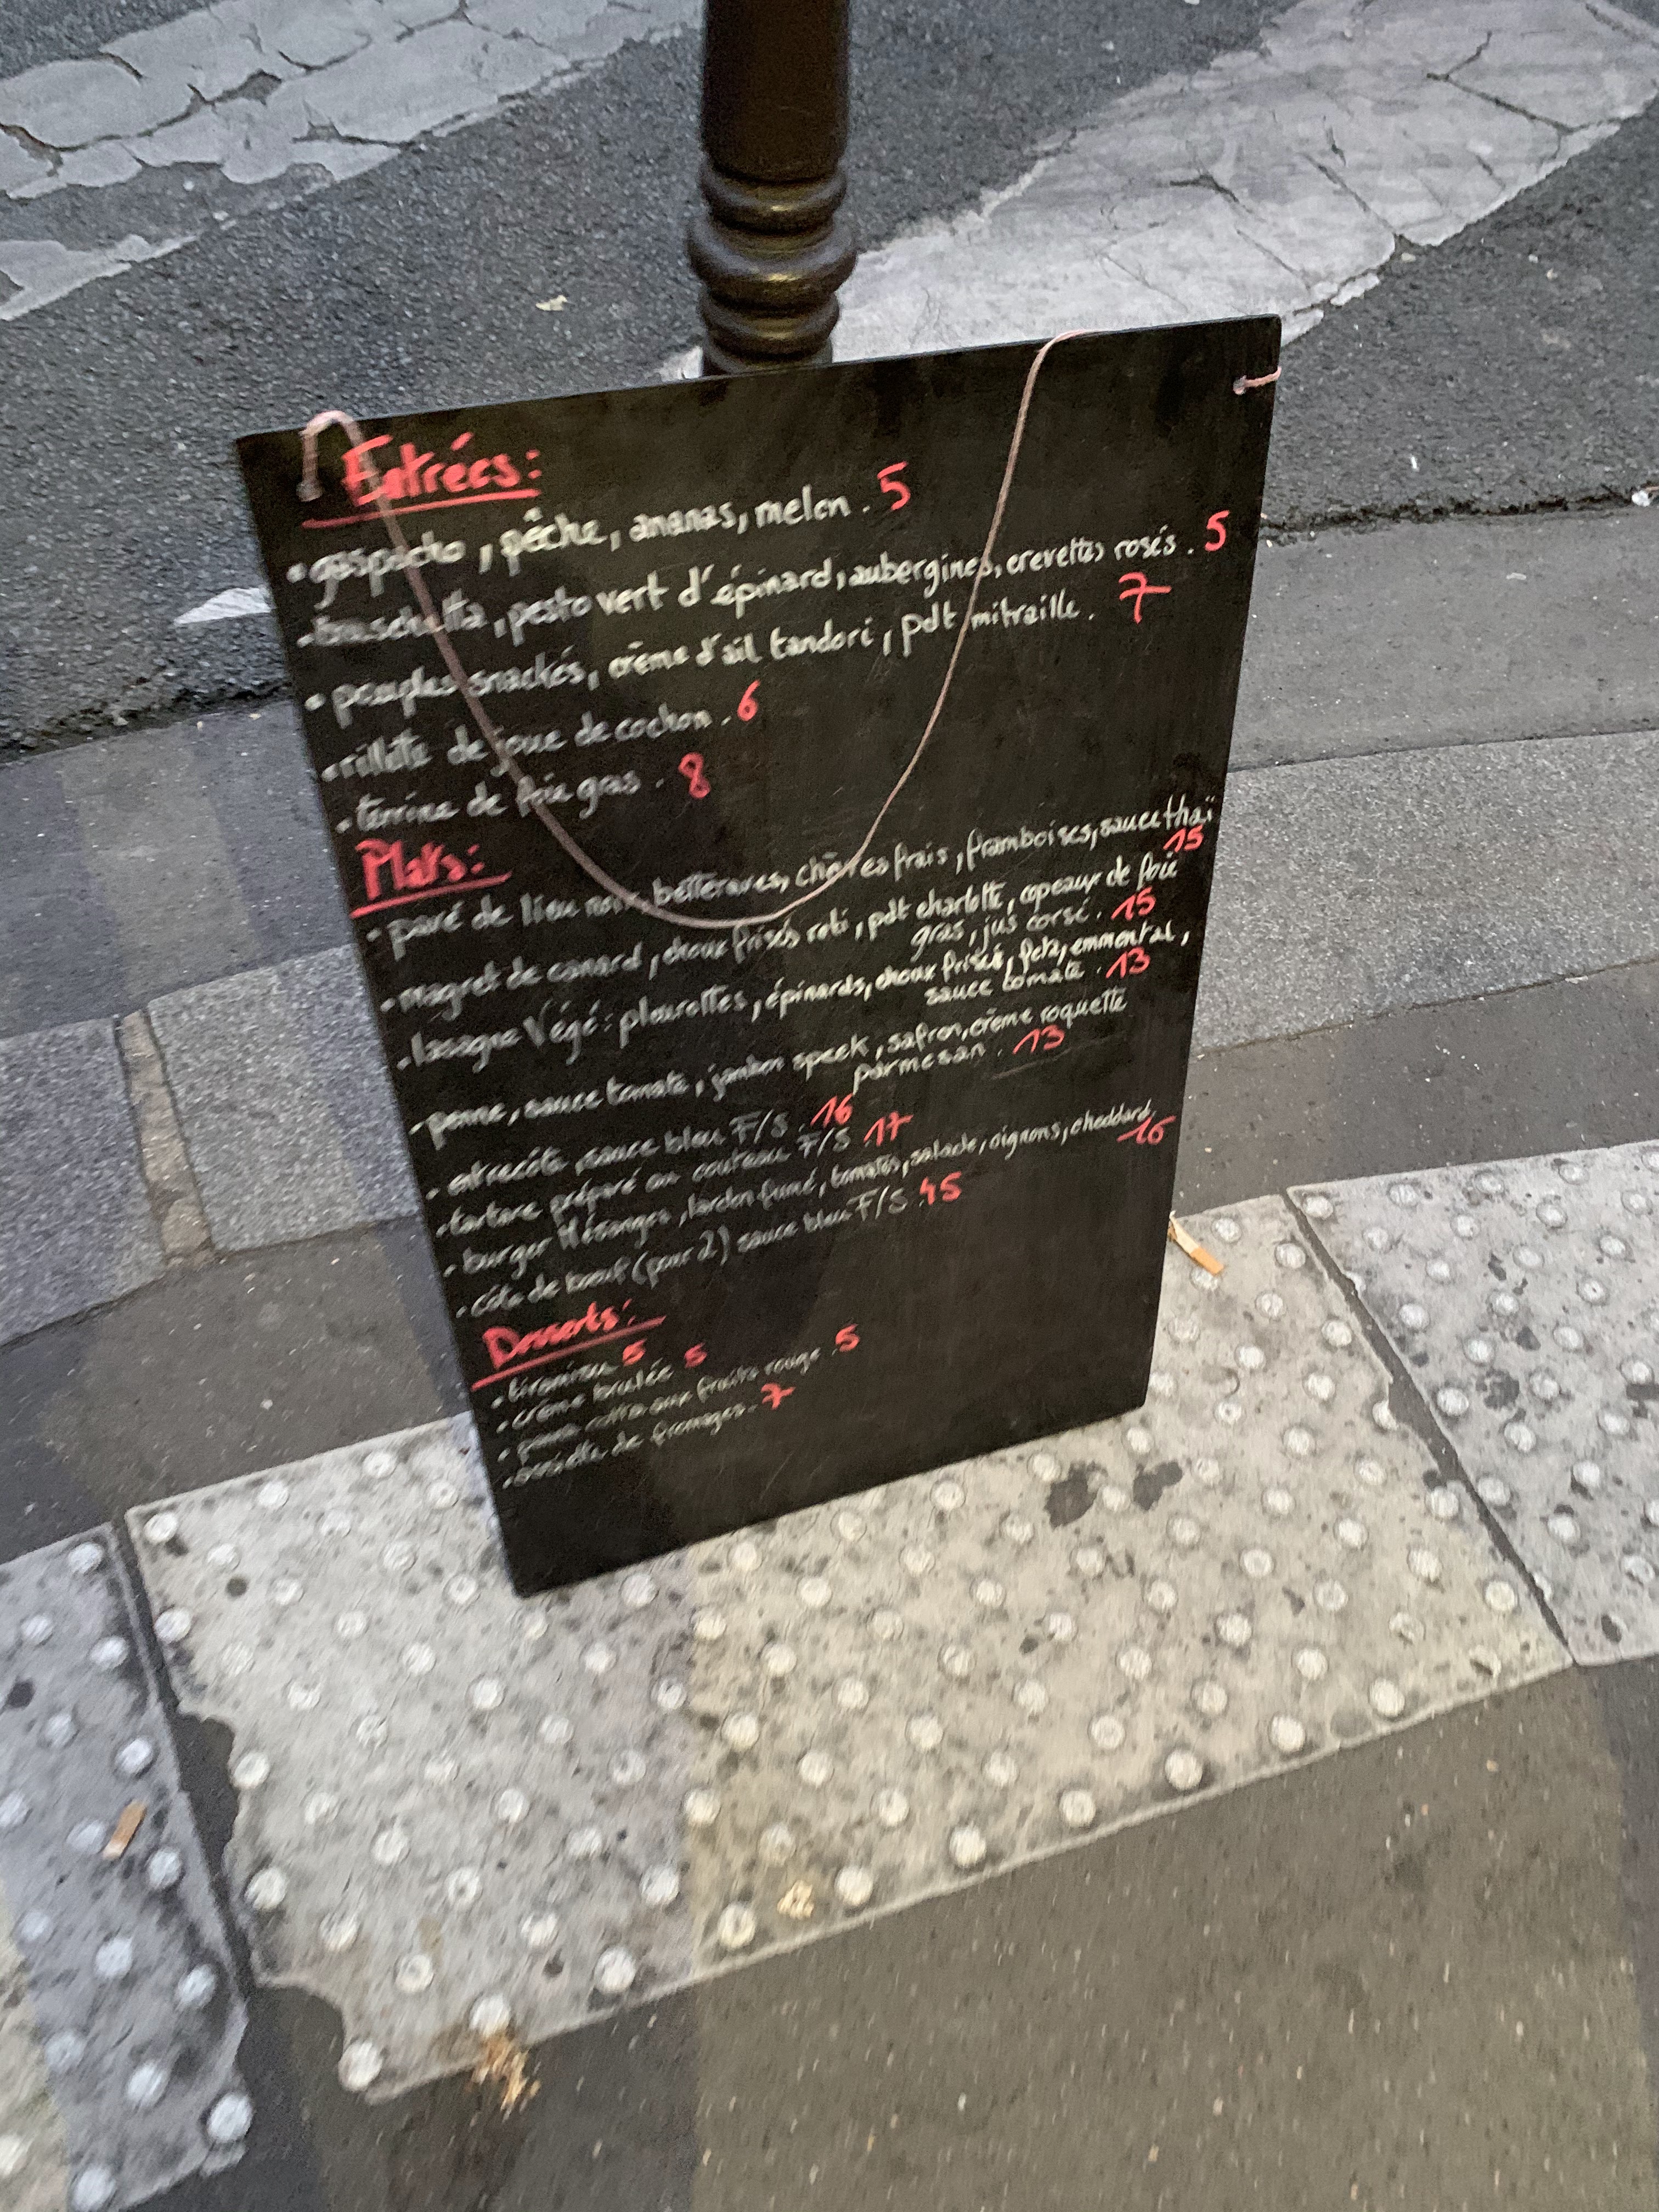 Entrées:
• gaspacho, pêche, ananas, melon. 5
• bruschetta, pesto vert d'épinard, aubergines, crevettes rosés. 5
• poulpes snackés, crème d'ail tandori, pdt mitraille. 7
• rillette de joue de cochon. 6
• terrine de foie gras. 8
Plats:
• pavé de lieu noir, betteraves, chèvres frais, framboises, sauce thaï
15
• Magret de canard, choux frisés roti, pdt charlotte, copeaux de foie
gras, jus corsé. 15
• lasagne Végé: pleurottes, épinards, choux frisés, feta, emmental,
sauce tomate. 13
• penne, sauce tomate, jambon speck, safran, crème roquette
parmesan. 13
• entrecôte, sauce bleu F/S. 16
• tartare préparé au couteau F/S 17
• burger Mésanges, lardon fumé, tomates, salade, oignons, cheddard.
16
• côte de bœuf (pour 2) sauce bleu F/S. 45
Desserts:
• tiramisu 5
• crème brulée 5
• panna cotta aux fruits rouge. 5
• assiette de fromages. 7